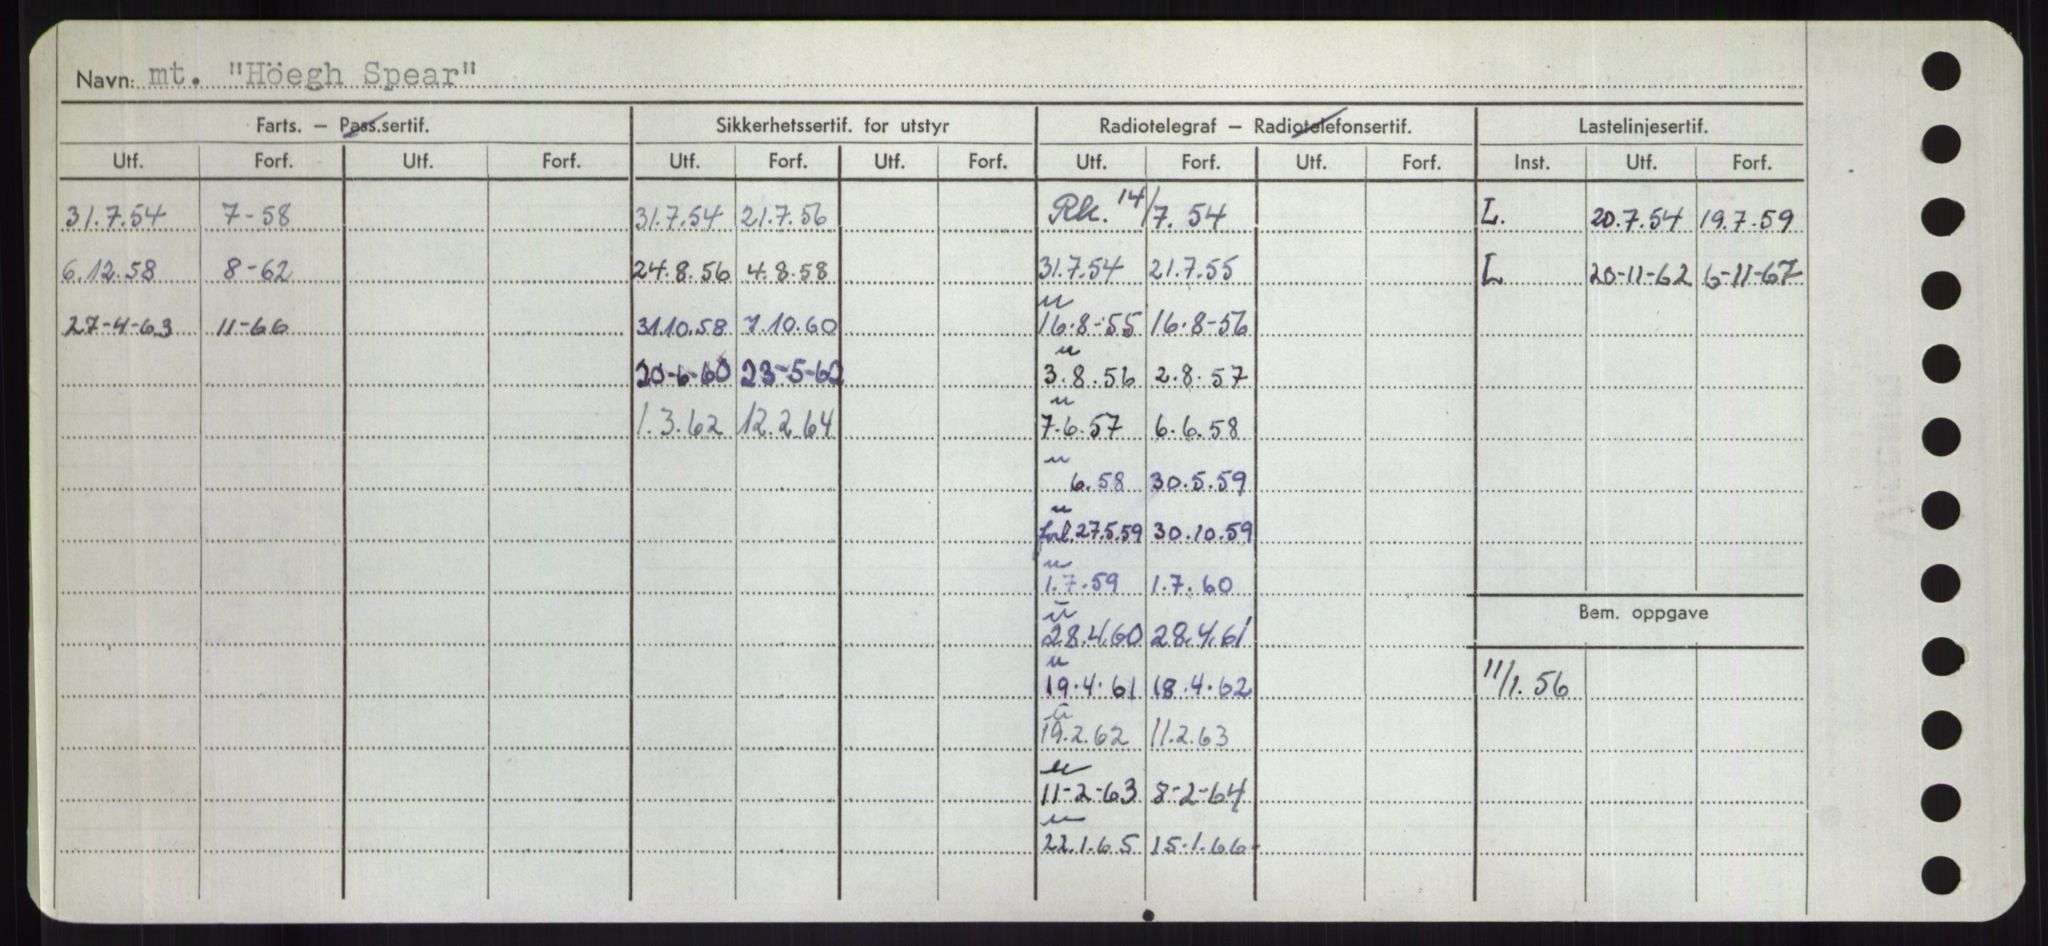 Navn: mt. "Höegh Spear"
Farts. — Pass.sertif. Sikkerhetssertif. for utstyr Radiotelegraf — Radiotelefonsertif. Lastelinjesertif.
Utf. Forf. Utf. Forf. Utf. Forf. Utf. Forf. Utf. Forf. Utf. Forf. Inst. Utf. Forf.
31.7.54 7-58 31.7.54 21.7.56 Rk. 14/7.54 L. 20.7.54 19.7.59
6.12.58 8-62 24.8.56 4.8.58 31.7.54 21.7.55 L 20-11-62 6-11-67
u
27-4-63 11-66 31.10.58 7.10.60 16.8-55 16.8-56
u
20-6-60 23-5-62 3.8.56 2.8.57
u
1.3.62 12.2.64 7.6.57 6.6.58
u
6.58 30.5.59
u
forl.27.5.59 30.10.59
u
1.7.59 1.7.60
u
Bem. oppgave
28.4.60 28.4.61
u
19.4.61 18.4.62 11/1.56
u
19.2.62 11.2.63
u
11-2-63 8-2-64
u
22.1.65 15.1.66